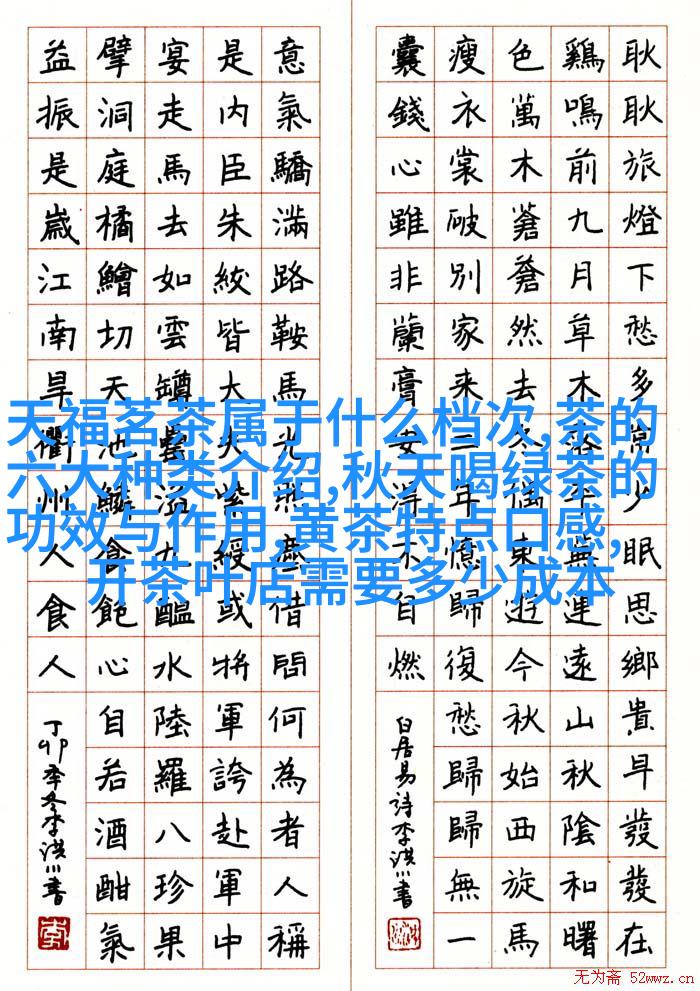 耿耿旅燈下愁多常少眠思鄉貴早發發在
鷄鳴前九月草木落平蕪連遠山秋陰和曙
色萬木蒼蒼然去冬偶東遊今秋始西旋馬
瘦衣裳破別家來二年憶歸復愁歸歸無一
囊錢心雖非蘭膏安得不自燃
白居易詩李洪川書
意氣驕滿路鞍馬光照塵借問何為者人稱
是內臣朱紱皆大夫紫綬或將軍誇赴軍中
宴走馬去如雲罇罍溢九醞水陸羅八珍果
擘洞庭橘鱠切天池鱗食飽心自若酒酣氣
益振是歲江南旱衢州人食人
丁卯季冬李洪川書
天福茗茶属于什么档次,茶的
六大种类介绍,秋天喝绿茶的
功效与作用,黄茶特点口感,
开茶叶店需要多少成本
无为斋 52wwz.cn